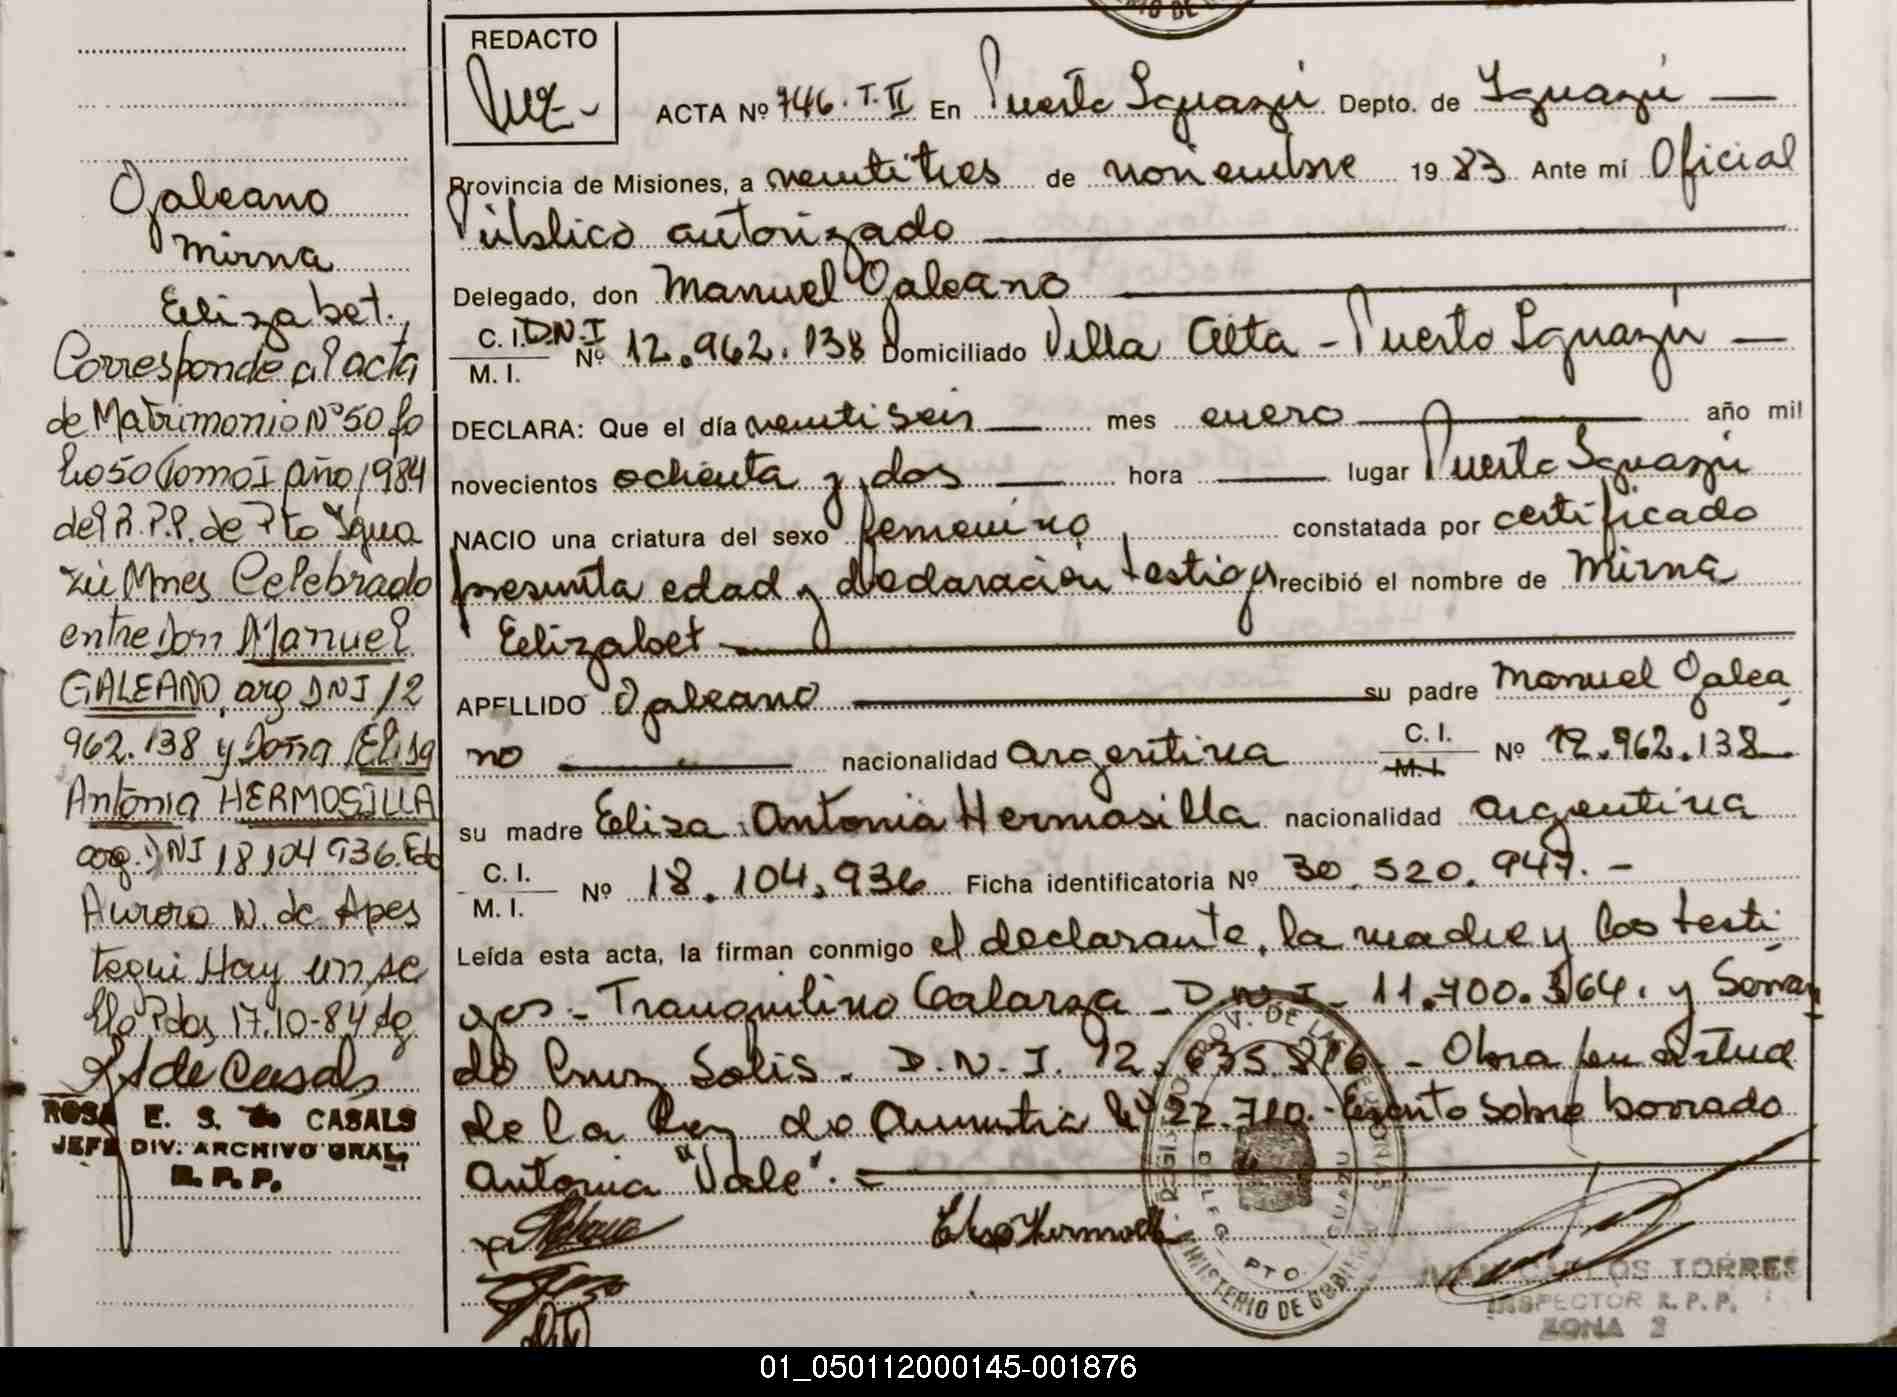 Galeano
Mirna
Elizabet.
Corresponde al acta
de Matrimonio Nº50 fo
lio 50 Tomo I año 1984
del R.P.P. de Pto Igua
zú Mnes Celebrado
entre Don Manuel
GALEANO, arg DNI 12
962.138 y Doña Elisa
Antonia HERMOSILLA
arg. DNI 18104 936. Fdo
Aurora N. de Apes
tegui Hay un se
llo Pdas 17.10-84 dg
ROSA E. S. de CASALS
JEFE DIV. ARCHIVO GRAL.
R. P. P.
REDACTO
ACTA Nº 746. T. II En Puerto Iguazú Depto. de Iguazú
Provincia de Misiones, a veintitres de noviembre 19 83 Ante mí Oficial
Público autorizado
Delegado, don Manuel Galeano
C. I. D.N.I
M. I. Nº 12.962.138 Domiciliado Villa Alta - Puerto Iguazú
DECLARA: Que el día veintiseis mes enero año mil
novecientos ochenta y dos hora lugar Puerto Iguazú
NACIO una criatura del sexo femenino constatada por certificado
presunta edad y declaración testigos recibió el nombre de Mirna
Elizabet
APELLIDO Galeano su padre Manuel Galea
no nacionalidad argentina C. I. M. I. Nº 12.962.138
su madre Elisa Antonia Hermosilla nacionalidad argentina
C. I.
M. I. Nº 18.104.936 Ficha identificatoria Nº 30.520.947.-
Leída esta acta, la firman conmigo el declarante, la madre y los testi
gos - Tranquilino Galarza - D.N.I - 11.700.364. y
do Cruz Solis. D.N.I. 12.635.816 - Obra en virtud
de la Ley de Amnistia Nº 22.710.- Escrito sobre borrado
Antonia "Vale".=
PROV. DE
DELEG. PTO. IGUAZU
MINISTERIO DE GOBIERNO
JUAN CARLOS TORRES
INSPECTOR R. P. P.
ZONA 2
01_050112000145-001876